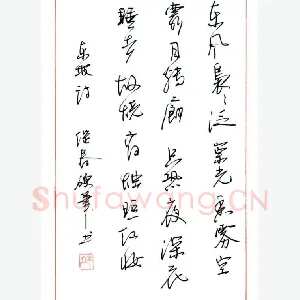 东风袅袅泛崇光香雾空
雾月转廊只恐夜深花
睡去故烧高烛照红妆
东坡诗
Shufawang.CN